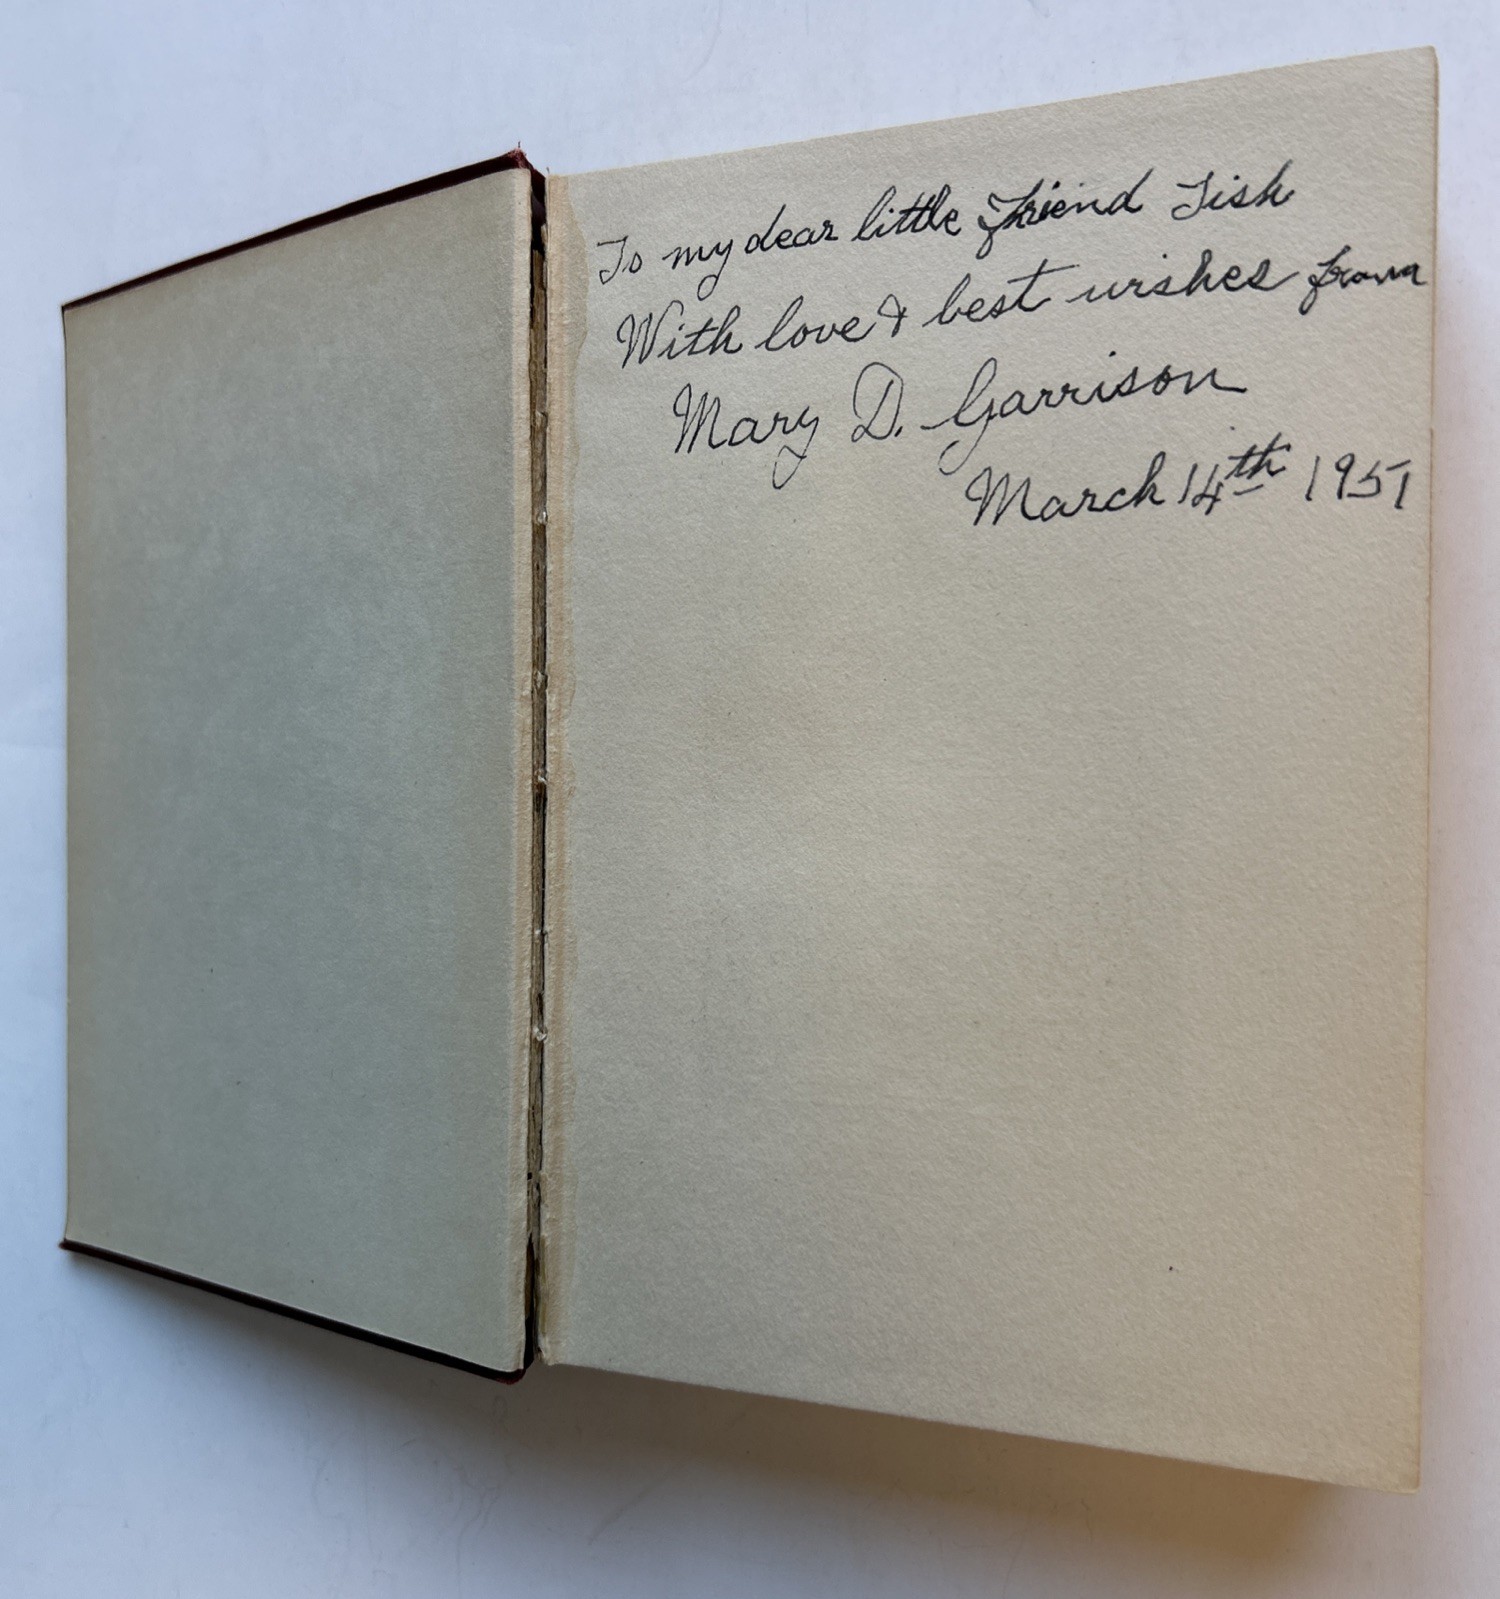 To my dear little friend Tish
With love & best wishes from
Mary D. Garrison
March 14th 1951